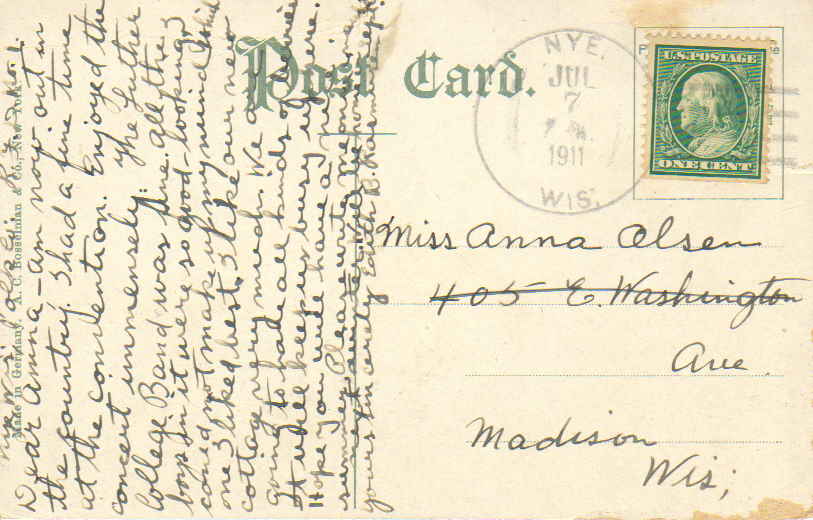 Post Card.
NYE.
JUL
7
1911
WIS.
U.S. POSTAGE
ONE CENT
Miss Anna Olsen
405 E. Washington
Ave
Madison
Wis;
Made in Germany. A. C. Bosselman & Co., New York
Dear Anna - Am now out in
the country. I had a fine time
at the convention. Enjoyed the
concert immensely. The Luther
College Band was fine. All the
boys in it were so good-looking I
could not make up my mind which
one I liked best. I like our new
cottage very much. We are
going to have all kinds of
It will keep us busy
Hope you will have a nice
summer. Please write me

yours sincerely Edith R.